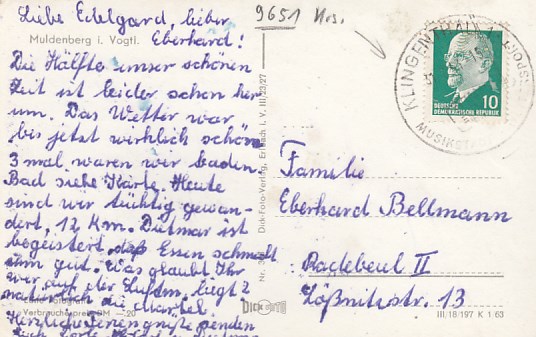 Liebe Edelgard, lieber
Muldenberg i. Vogtl.
Eberhard!
Die Hälfte unser schönen
Zeit ist leider schon her
um. Das Wetter war
bis jetzt wirklich schön
3 mal waren wir baden.
Bad siehe Karte. Heute
sind wir tüchtig gewan-
dert, 12 Km. Dietmar ist
begeistert, daß Essen schmeckt
ihm gut. Was glaubt Ihr
wer auf der Luftm. liegt?
natürlich die
Verbraucherpreis DM -.20
Herzliche Feriengrüße senden
9651 Krs.
KLINGENTHAL
MUSIKSTA
DEUTSCHE
DEMOKRATISCHE REPUBLIK
10
Dick-Foto-Verlag, Erlbach i. V. III/23/27
Nr.
DICK
Familie
Eberhard Bellmann
Radebeul II
Lößnitzstr. 13
III/18/197 K 1 63